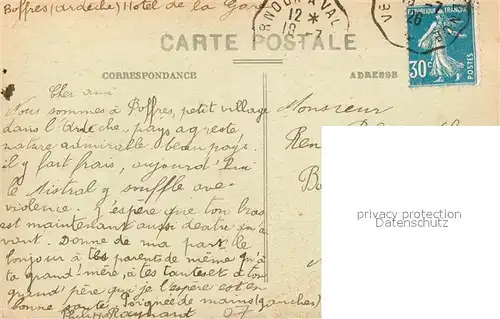 Boffres (ardèche) Hotel de la Gare
RNOUX A VAL
12 *
18 - 7
26
30c
POSTES
CARTE POSTALE
CORRESPONDANCE
ADRESSE
Cher ami
Nous sommes à Boffres, petit village
dans l'Ardèche, pays agreste,
nature admirable beau pays.
il y fait frais, aujourd'hui
le Mistral y souffle avec
violence. J'espère que ton bras
est maintenant aussi
vant. Donne de ma part le
bonjour à tes parents de même qu'à
ta grand'mère, à tes tantes et à ton
grand'père qui je l'espère est en
bonne santé. Poignée de mains (gauches)
Raynard
07
Monsieur
privacy protection
www.oldthing.de